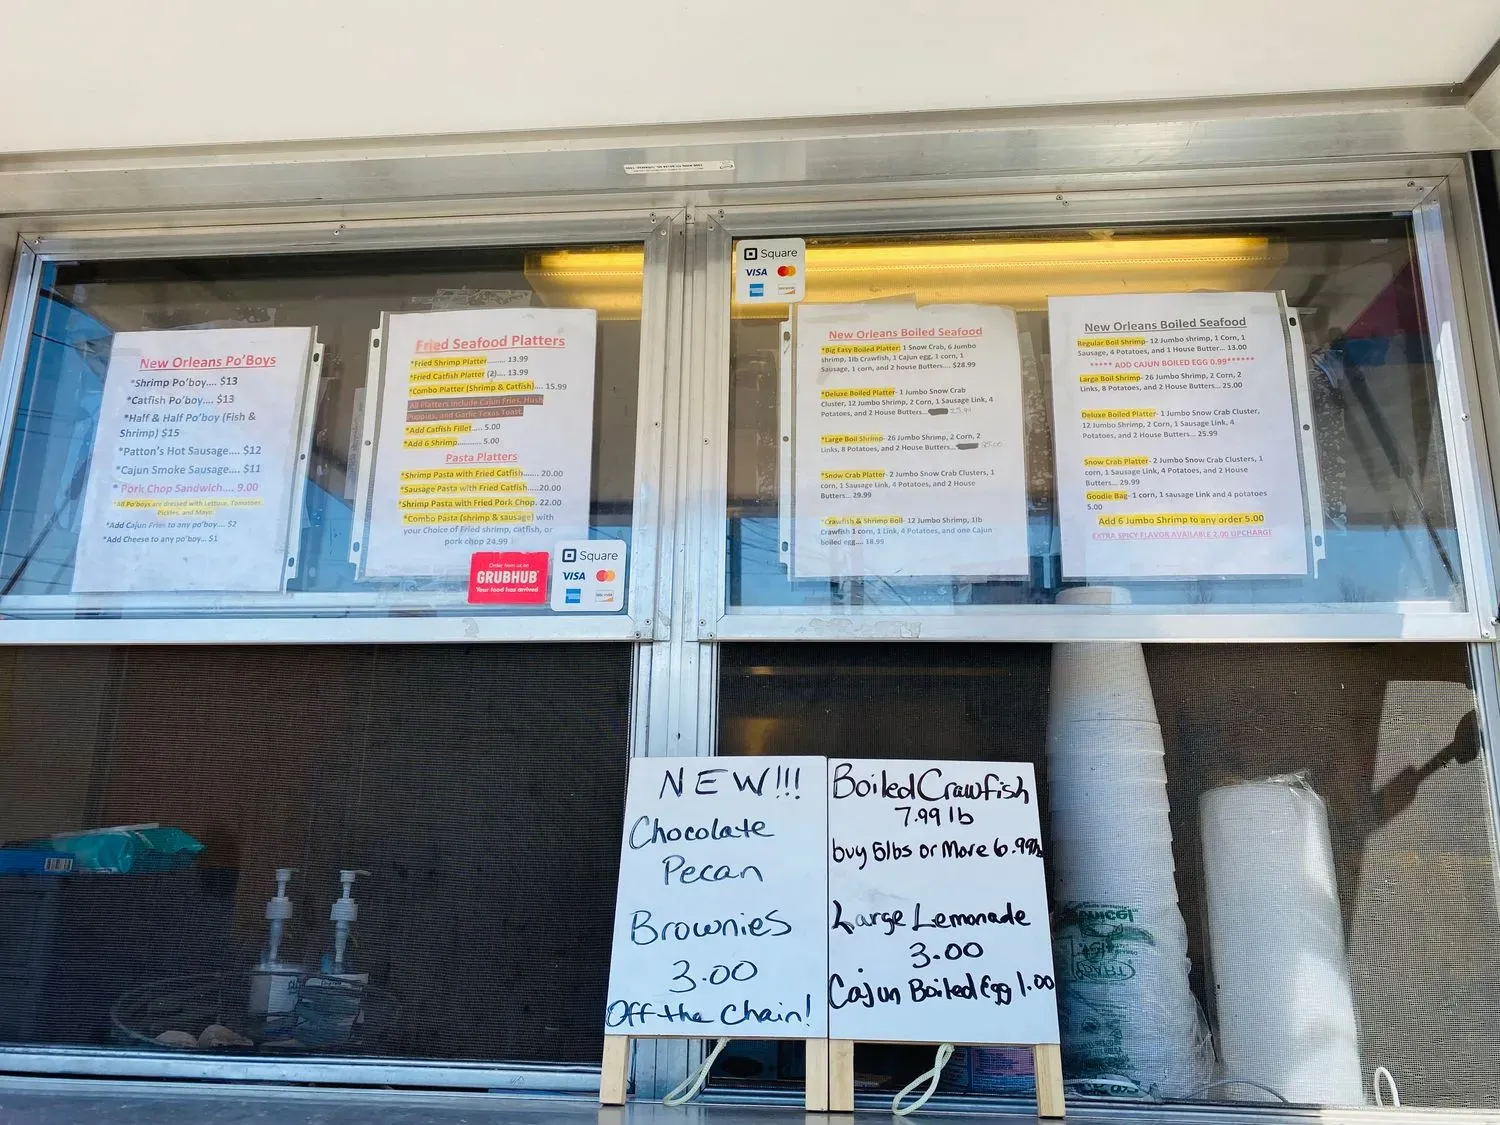 New Orleans Po'Boys
*Shrimp Po'boy.... $13
*Catfish Po'boy.... $13
*Half & Half Po'boy (Fish &
Shrimp) $15
*Patton's Hot Sausage.... $12
*Cajun Smoke Sausage.... $11
* Pork Chop Sandwich.... 9.00
*All Po'boys are dressed with Lettuce, Tomatoes,
Pickles, and Mayo
*Add Cajun Fries to any po'boy... $2
*Add Cheese to any po'boy... $1
Fried Seafood Platters
*Fried Shrimp Platter.......... 13.99
*Fried Catfish Platter (2).... 13.99
*Combo Platter (Shrimp & Catfish).... 15.99
All Platters include Cajun Fries, Hush
Puppies, and Garlic Texas Toast.
*Add Catfish Fillet..... 5.00
*Add 6 Shrimp........... 5.00
Pasta Platters
*Shrimp Pasta with Fried Catfish...... 20.00
*Sausage Pasta with Fried Catfish.....20.00
*Shrimp Pasta with Fried Pork Chop. 22.00
*Combo Pasta (shrimp & sausage) with
your Choice of Fried shrimp, catfish, or
pork chop 24.99
Order from us on
GRUBHUB
Your food has arrived
Square
VISA
Square
VISA
New Orleans Boiled Seafood
*Big Easy Boiled Platter: 1 Snow Crab, 6 Jumbo
shrimp, 1lb Crawfish, 1 Cajun egg, 1 corn, 1
Sausage, 4 Potatoes, and 1 House Butter.... $28.99
*Deluxe Boiled Platter- 1 Jumbo Snow Crab
Cluster, 12 Jumbo Shrimp, 2 Corn, 1 Sausage Link, 4
Potatoes, and 2 House Butters... 25.99
*Large Boil Shrimp- 26 Jumbo Shrimp, 2 Corn, 2
Links, 8 Potatoes, and 2 House Butters... 25.00
*Snow Crab Platter- 2 Jumbo Snow Crab Clusters, 1
corn, 1 Sausage Link, 4 Potatoes, and 2 House
Butters... 29.99
*Crawfish & Shrimp Boil- 12 Jumbo Shrimp, 1lb
Crawfish 1 corn, 1 Link, 4 Potatoes, and one Cajun
boiled egg.... 18.99
New Orleans Boiled Seafood
Regular Boil Shrimp- 12 Jumbo shrimp, 1 Corn, 1
Sausage, 4 Potatoes, and 1 House Butter... 13.00
***** ADD CAJUN BOILED EGG 0.99******
Large Boil Shrimp- 26 Jumbo Shrimp, 2 Corn, 2
Links, 8 Potatoes, and 2 House Butters... 25.00
Deluxe Boiled Platter- 1 Jumbo Snow Crab Cluster,
12 Jumbo Shrimp, 2 Corn, 1 Sausage Link, 4
Potatoes, and 2 House Butters... 25.99
Snow Crab Platter- 2 Jumbo Snow Crab Clusters, 1
corn, 1 Sausage Link, 4 Potatoes, and 2 House
Butters... 29.99
Goodie Bag- 1 corn, 1 Sausage Link and 4 potatoes
5.00
Add 6 Jumbo Shrimp to any order 5.00
EXTRA SPICY FLAVOR AVAILABLE 2.00 UPCHARGE
NEW!!!
Chocolate
Pecan
Brownies
3.00
Off the Chain!
Boiled Crawfish
7.99 lb
buy 5lbs or More 6.99lb
Large Lemonade
3.00
Cajun Boiled Egg 1.00